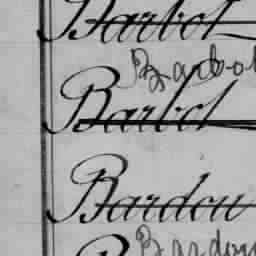 Barbot
Barbot
Barbot
Bardou
Bardou